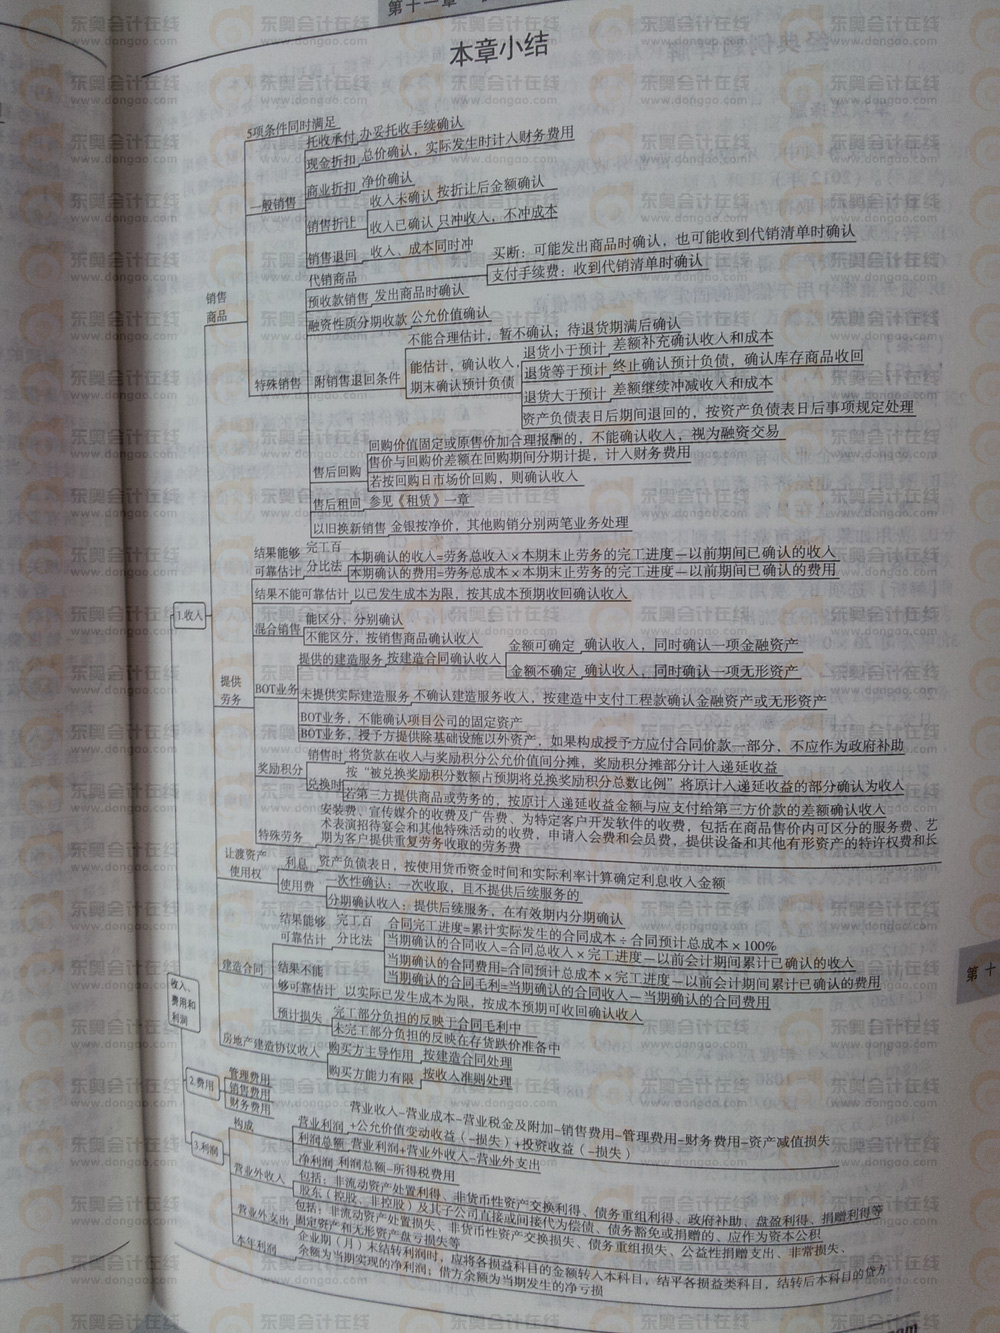 第十一章
本章小结
5项条件同时满足
托收承付 办妥托收手续确认
现金折扣 总价确认，实际发生时计入财务费用
商业折扣 净价确认
一般销售
收入未确认 按折让后金额确认
销售折让 收入已确认 只冲收入，不冲成本
销售退回 收入、成本同时冲
代销商品
买断：可能发出商品时确认，也可能收到代销清单时确认
支付手续费：收到代销清单时确认
预收款销售 发出商品时确认
销售
商品
融资性质分期收款 公允价值确认
不能合理估计，暂不确认；待退货期满后确认
特殊销售 附销售退回条件
能估计，确认收入，
期末确认预计负债
退货小于预计 差额补充确认收入和成本
退货等于预计 终止确认预计负债，确认库存商品收回
退货大于预计 差额继续冲减收入和成本
资产负债表日后期间退回的，按资产负债表日后事项规定处理
回购价值固定或原售价加合理报酬的，不能确认收入，视为融资交易
售后回购 售价与回购价差额在回购期间分期计提，计入财务费用
若按回购日市场价回购，则确认收入
售后租回 参见《租赁》一章
以旧换新销售 金银按净价，其他购销分别两笔业务处理
结果能够
可靠估计
完工百
分比法
本期确认的收入=劳务总收入×本期末止劳务的完工进度—以前期间已确认的收入
本期确认的费用=劳务总成本×本期末止劳务的完工进度—以前期间已确认的费用
1.收入
结果不能可靠估计 以已发生成本为限，按其成本预期收回确认收入
混合销售
能区分，分别确认
不能区分，按销售商品确认收入
提供
劳务
BOT业务
提供的建造服务 按建造合同确认收入
金额可确定 确认收入，同时确认一项金融资产
金额不确定 确认收入，同时确认一项无形资产
未提供实际建造服务 不确认建造服务收入，按建造中支付工程款确认金融资产或无形资产
BOT业务，不能确认项目公司的固定资产
BOT业务，授予方提供除基础设施以外资产，如果构成授予方应付合同价款一部分，不应作为政府补助
奖励积分
销售时 将货款在收入与奖励积分公允价值间分摊，奖励积分摊部分计入递延收益
兑换时
按“被兑换奖励积分数额占预期将兑换奖励积分总数比例”将原计入递延收益的部分确认为收入
若第三方提供商品或劳务的，按原计入递延收益金额与应支付给第三方价款的差额确认收入
特殊劳务
安装费、宣传媒介的收费及广告费、为特定客户开发软件的收费，包括在商品售价内可区分的服务费、艺
术表演招待宴会和其他特殊活动的收费，申请入会费和会员费，提供设备和其他有形资产的特许权费和长
期为客户提供重复劳务收取的劳务费
让渡资产
使用权
利息 资产负债表日，按使用货币资金时间和实际利率计算确定利息收入金额
使用费
一次性确认：一次收取，且不提供后续服务的
分期确认收入：提供后续服务，在有效期内分期确认
结果能够
可靠估计
完工百
分比法
合同完工进度=累计实际发生的合同成本÷合同预计总成本×100%
当期确认的合同收入=合同总收入×完工进度—以前会计期间累计已确认的收入
当期确认的合同费用=合同预计总成本×完工进度—以前会计期间累计已确认的费用
当期确认的合同毛利=当期确认的合同收入—当期确认的合同费用
建造合同
结果不能
够可靠估计 以实际已发生成本为限，按成本预期可收回确认收入
收入、
费用和
利润
预计损失
完工部分负担的反映于合同毛利中
未完工部分负担的反映在存货跌价准备中
房地产建造协议收入
购买方主导作用 按建造合同处理
购买方能力有限 按收入准则处理
2.费用
管理费用
销售费用
财务费用
3.利润
构成
营业利润
营业收入-营业成本-营业税金及附加-销售费用-管理费用-财务费用-资产减值损失
+公允价值变动收益（-损失）+投资收益（-损失）
利润总额 营业利润+营业外收入-营业外支出
净利润 利润总额-所得税费用
营业外收入
包括：非流动资产处置利得、非货币性资产交换利得、债务重组利得、政府补助、盘盈利得、捐赠利得等
股东（控股、非控股）及其子公司直接或间接代为偿债、债务豁免或捐赠的、应作为资本公积
营业外支出
包括：非流动资产处置损失、非货币性资产交换损失、债务重组损失、公益性捐赠支出、非常损失、
固定资产和无形资产盘亏损失等
本年利润
企业期（月）末结转利润时，应将各损益科目的金额转入本科目，结平各损益类科目，结转后本科目的贷方
余额为当期实现的净利润；借方余额为当期发生的净亏损
第十
东奥会计在线
www.dongao.com